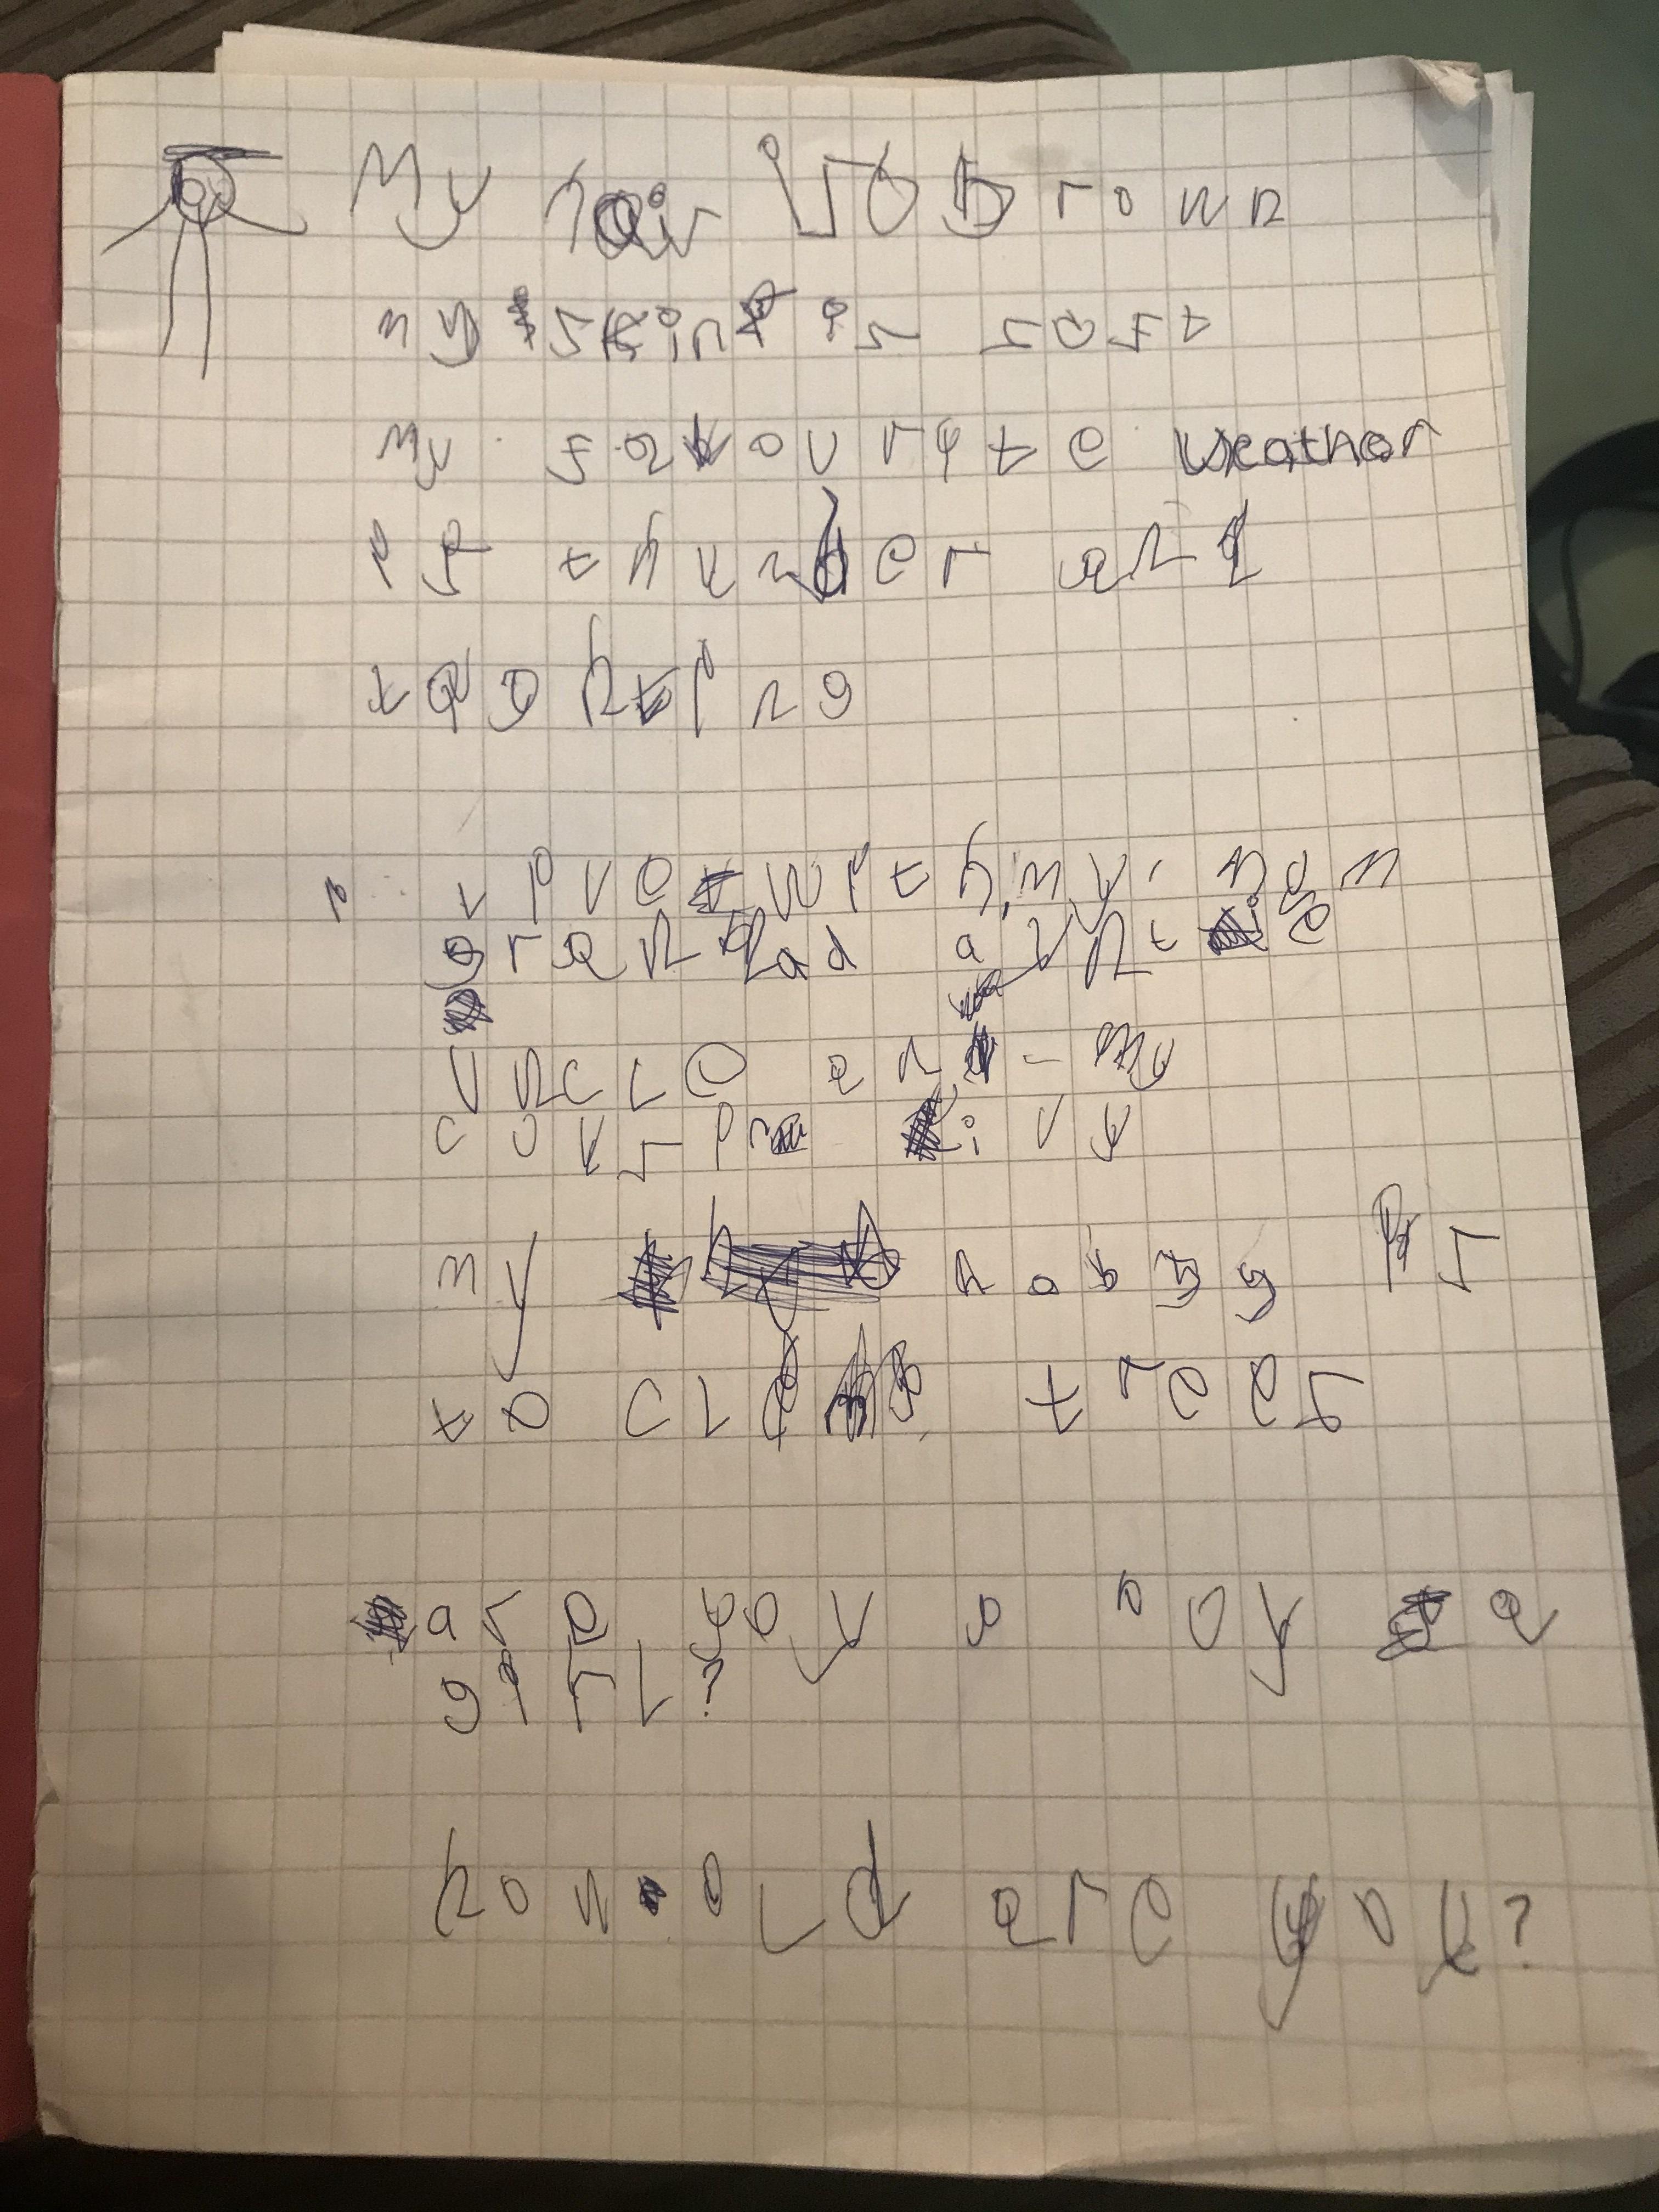 My hair is brown
my skin is soft
My favourite weather
is thunder and
lightning
I live with my mom
grandad auntie
uncle and my
cousin ivy
my hobyy is
to climb trees
are you a boy a
girl?
how old are you?